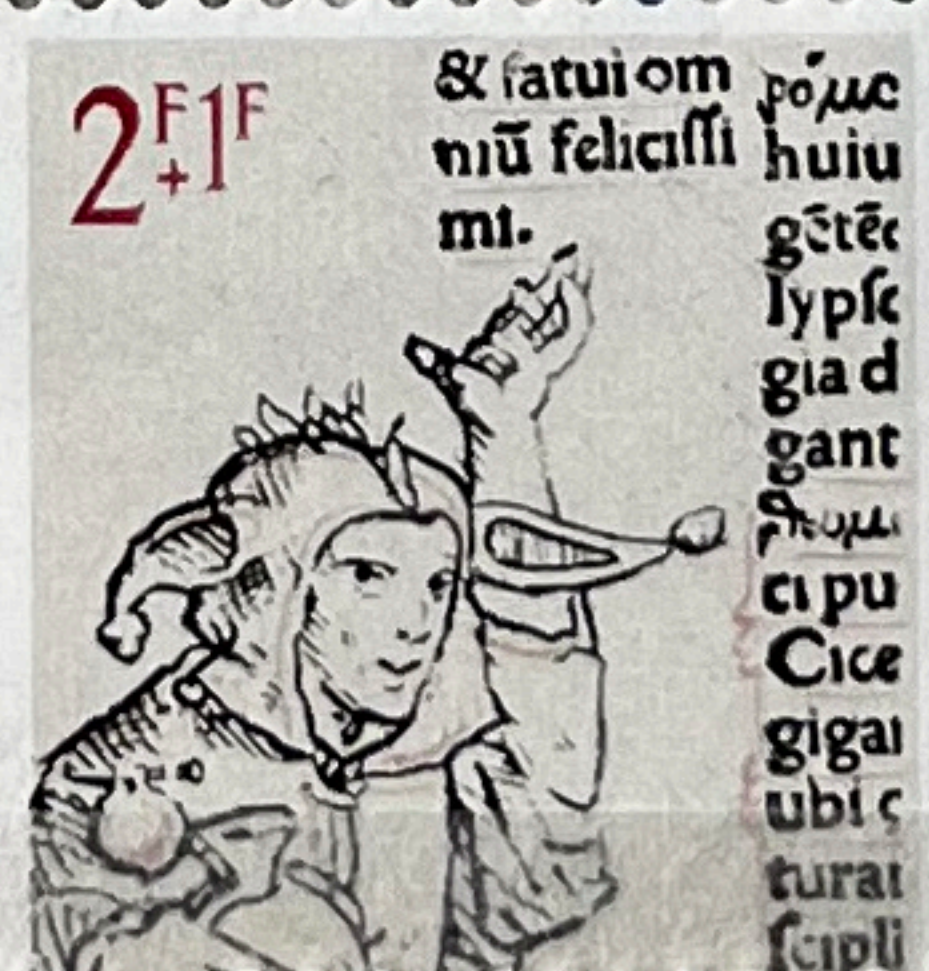 2F+1F
& fatui om
niū feliciſſi
mi.
huiu
gētēc
lypſc
gia d
gant
ci pu
Cice
gigaı
ubi c
turaı
ſcipli